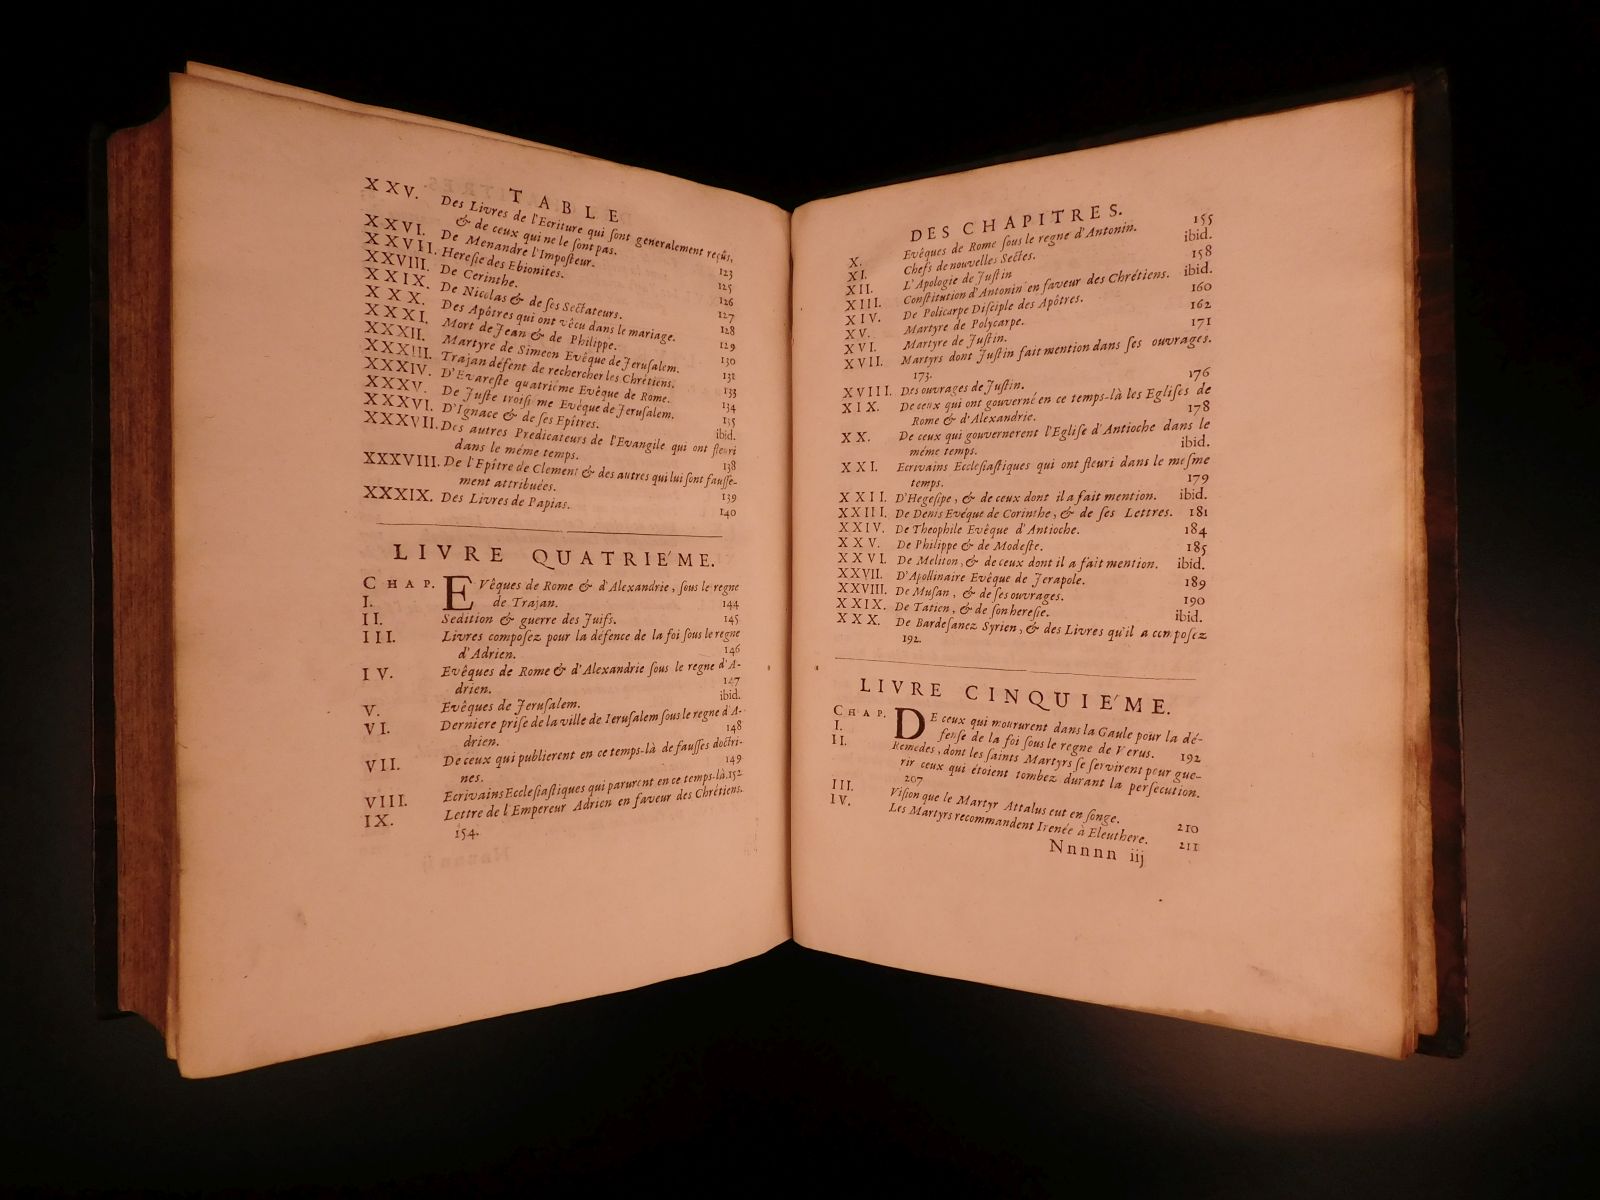 TABLE
XXV. Des Livres de l'Ecriture qui sont generalement reçûs,
& de ceux qui ne le sont pas. 123
XXVI. De Menandre l'Imposteur. 125
XXVII. Heresie des Ebionites. 126
XXVIII. De Cerinthe. 127
XXIX. De Nicolas & de ses Sectateurs. 128
XXX. Des Apôtres qui ont vêcu dans le mariage. 129
XXXI. Mort de Jean & de Philippe. 130
XXXII. Martyre de Simeon Evêque de Jerusalem. 131
XXXIII. Trajan défent de rechercher les Chrétiens. 133
XXXIV. D'Evareste quatriéme Evêque de Rome. 134
XXXV. De Juste troisiéme Evêque de Jerusalem. 135
XXXVI. D'Ignace & de ses Epîtres. ibid.
XXXVII. Des autres Predicateurs de l'Evangile qui ont fleuri
dans le méme temps. 138
XXXVIII. De l'Epître de Clement & des autres qui lui sont fausse-
ment attribuées. 139
XXXIX. Des Livres de Papias. 140
LIVRE QUATRIE'ME.
CHAP. I. EVêques de Rome & d'Alexandrie, sous le regne
de Trajan. 144
II. Sedition & guerre des Juifs. 145
III. Livres composez pour la défence de la foi sous le regne
d'Adrien. 146
IV. Evêques de Rome & d'Alexandrie sous le regne d'A-
drien. 147
V. Evêques de Jerusalem. ibid.
VI. Derniere prise de la ville de Ierusalem sous le regne d'A-
drien. 148
VII. De ceux qui publierent en ce temps-là de fausses doctri-
nes. 149
VIII. Ecrivains Ecclesiastiques qui parurent en ce temps-là. 152
IX. Lettre de l'Empereur Adrien en faveur des Chrétiens.
154.
DES CHAPITRES.
X. Evêques de Rome sous le regne d'Antonin. 155
XI. Chefs de nouvelles Sectes. ibid.
XII. L'Apologie de Justin 158
XIII. Constitution d'Antonin en faveur des Chrétiens. ibid.
XIV. De Policarpe Disciple des Apôtres. 160
XV. Martyre de Polycarpe. 162
XVI. Martyre de Justin. 171
XVII. Martyrs dont Justin fait mention dans ses ouvrages.
173.
XVIII. Des ouvrages de Justin. 176
XIX. De ceux qui ont gouverné en ce temps-là les Eglises de
Rome & d'Alexandrie. 178
XX. De ceux qui gouvernerent l'Eglise d'Antioche dans le
méme temps. ibid.
XXI. Ecrivains Ecclesiastiques qui ont fleuri dans le mesme
temps. 179
XXII. D'Hegesipe, & de ceux dont il a fait mention. ibid.
XXIII. De Denis Evêque de Corinthe, & de ses Lettres. 181
XXIV. De Theophile Evêque d'Antioche. 184
XXV. De Philippe & de Modeste. 185
XXVI. De Meliton, & de ceux dont il a fait mention. ibid.
XXVII. D'Apollinaire Evêque de Jerapole. 189
XXVIII. De Musan, & de ses ouvrages. 190
XXIX. De Tatien, & de son heresie. ibid.
XXX. De Bardesanez Syrien, & des Livres qu'il a composez
192.
LIVRE CINQUIE'ME.
CHAP. I. DE ceux qui moururent dans la Gaule pour la dé-
fense de la foi sous le regne de Verus. 192
II. Remedes, dont les saints Martyrs se servirent pour gue-
rir ceux qui étoient tombez durant la persecution.
207
III. Vision que le Martyr Attalus eut en songe. 210
IV. Les Martyrs recommandent Irenée à Eleuthere. 211
Nnnnn iij